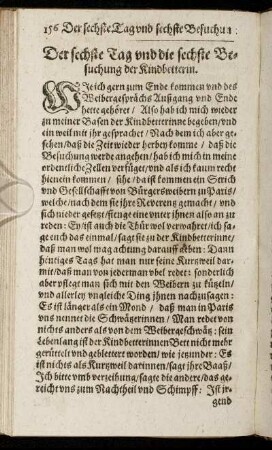 156 Der sechste Tag vnd sechste Besuchun
Der sechste Tag vnd die sechste Be-
suchung der Kindbetterin.
WJe ich gern zum Ende kommen vnd des
Weibergesprächs Außgang vnd Ende
hette gehöret / Also hab ich mich wieder
zu meiner Basen der Kindbetterinne begeben / vnd
ein weil mit jhr gesprachet / Nach dem ich aber ge-
sehen / daß die Zeit wieder herbey komme / daß die
Besuchung werde angehen / hab ich mich in meine
ordentliche Zellen verfüget / vnd als ich kaum recht
hienein kommen / sihe / da ist kommen ein Strich
vnd Gesellschafft von Bürgersweibern zu Paris /
welche / nach dem sie jhre Reverentz gemacht / vnd
sich nieder gesetzt / fienge eine vnter jhnen also an zu
reden: Ey / ist auch die Thür wol verwahret / ich sa-
ge euch das einmal / sagt sie zu der Kindbetterinne /
daß man wol mag achtung darauff geben: Dann
heutiges Tags hat man nur seine Kurtzweil dar-
mit / daß man von jederman vbel redet: sonderlich
aber pflegt man sich mit den Weibern zu kützeln /
vnd allerley vngleiche Ding jhnen nachzusagen:
Es ist länger als ein Mond / daß man in Paris
vns nennet die Schwätzerinnen / Man redet von
nichts anders als von dem Weibergeschwätz: sein
Lebenlang ist der Kindbetterinnen Bett nicht mehr
gerüttelt vnd geblettert worden / wie jetzunder: Es
ist nichts als Kurtzweil darinnen / sagt jhre Baaß /
Jch bitte vmb verzeihung / sagte die andere / das ge-
reicht vns zum Nachtheil vnd Schimpff: Jst jr-
gend